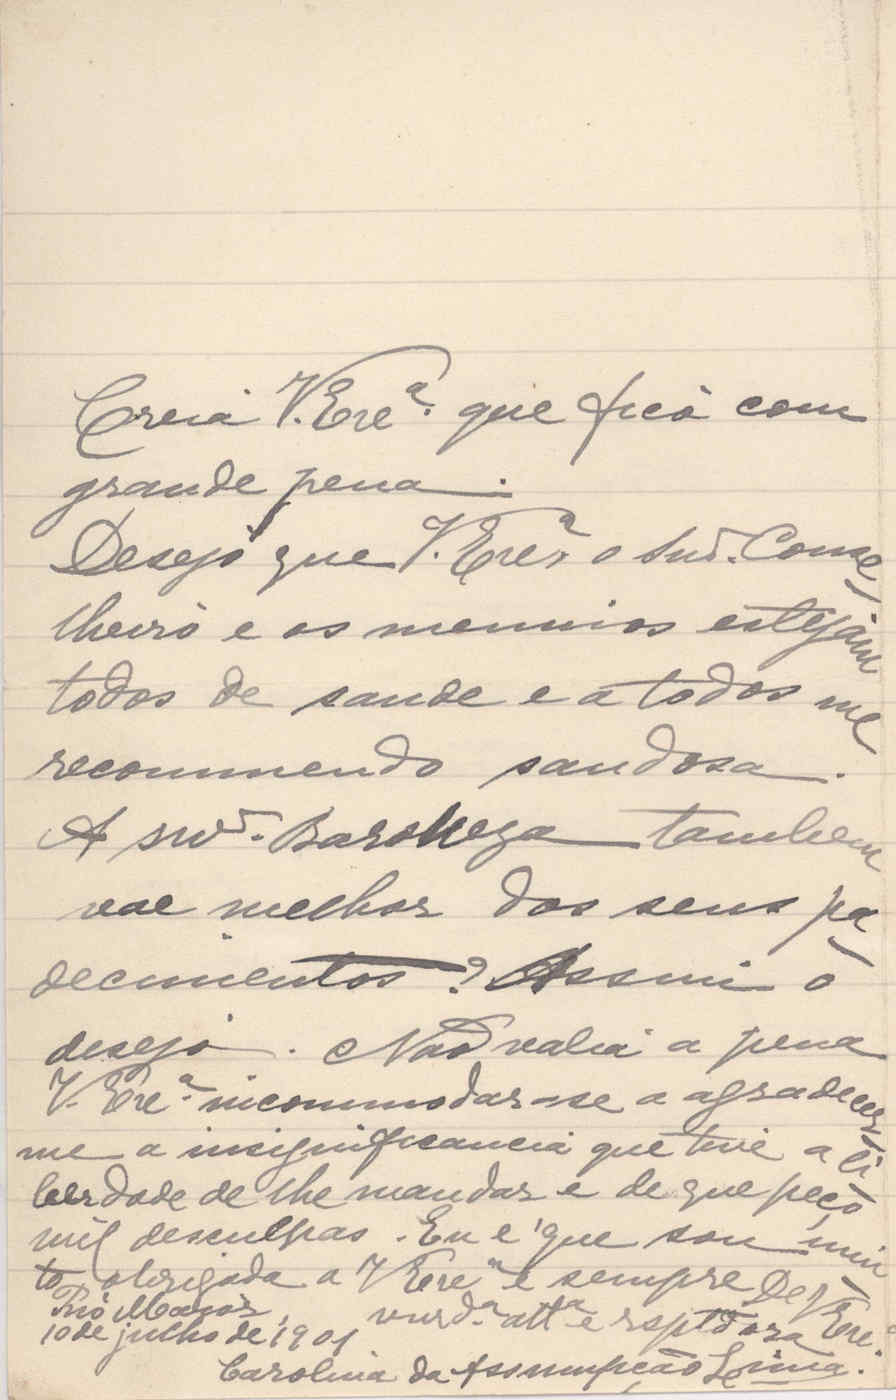 Creia V. Exc.ª que fico com
grande pena.
Desejo que V. Exc.ª, o Snr. Conse-
lheiro e os meninos estejam
todos de saude e a todos me
recommendo saudosa.
A snr.ª Baroneza tambem
vae melhor dos seus pa-
decimentos? Assim o
desejo. Não valia a pena
V. Exc.ª incommodar-se a agradecer-
me a insignificancia que tive a li-
berdade de lhe mandar e de que peço
mil desculpas. Eu é que sou mui-
to obrigada a V. Exc.ª e sempre De V. Exc.ª
Rio Maior, 
10 de julho de 1901
att.ª e
Carolina da Assumpção Lima.